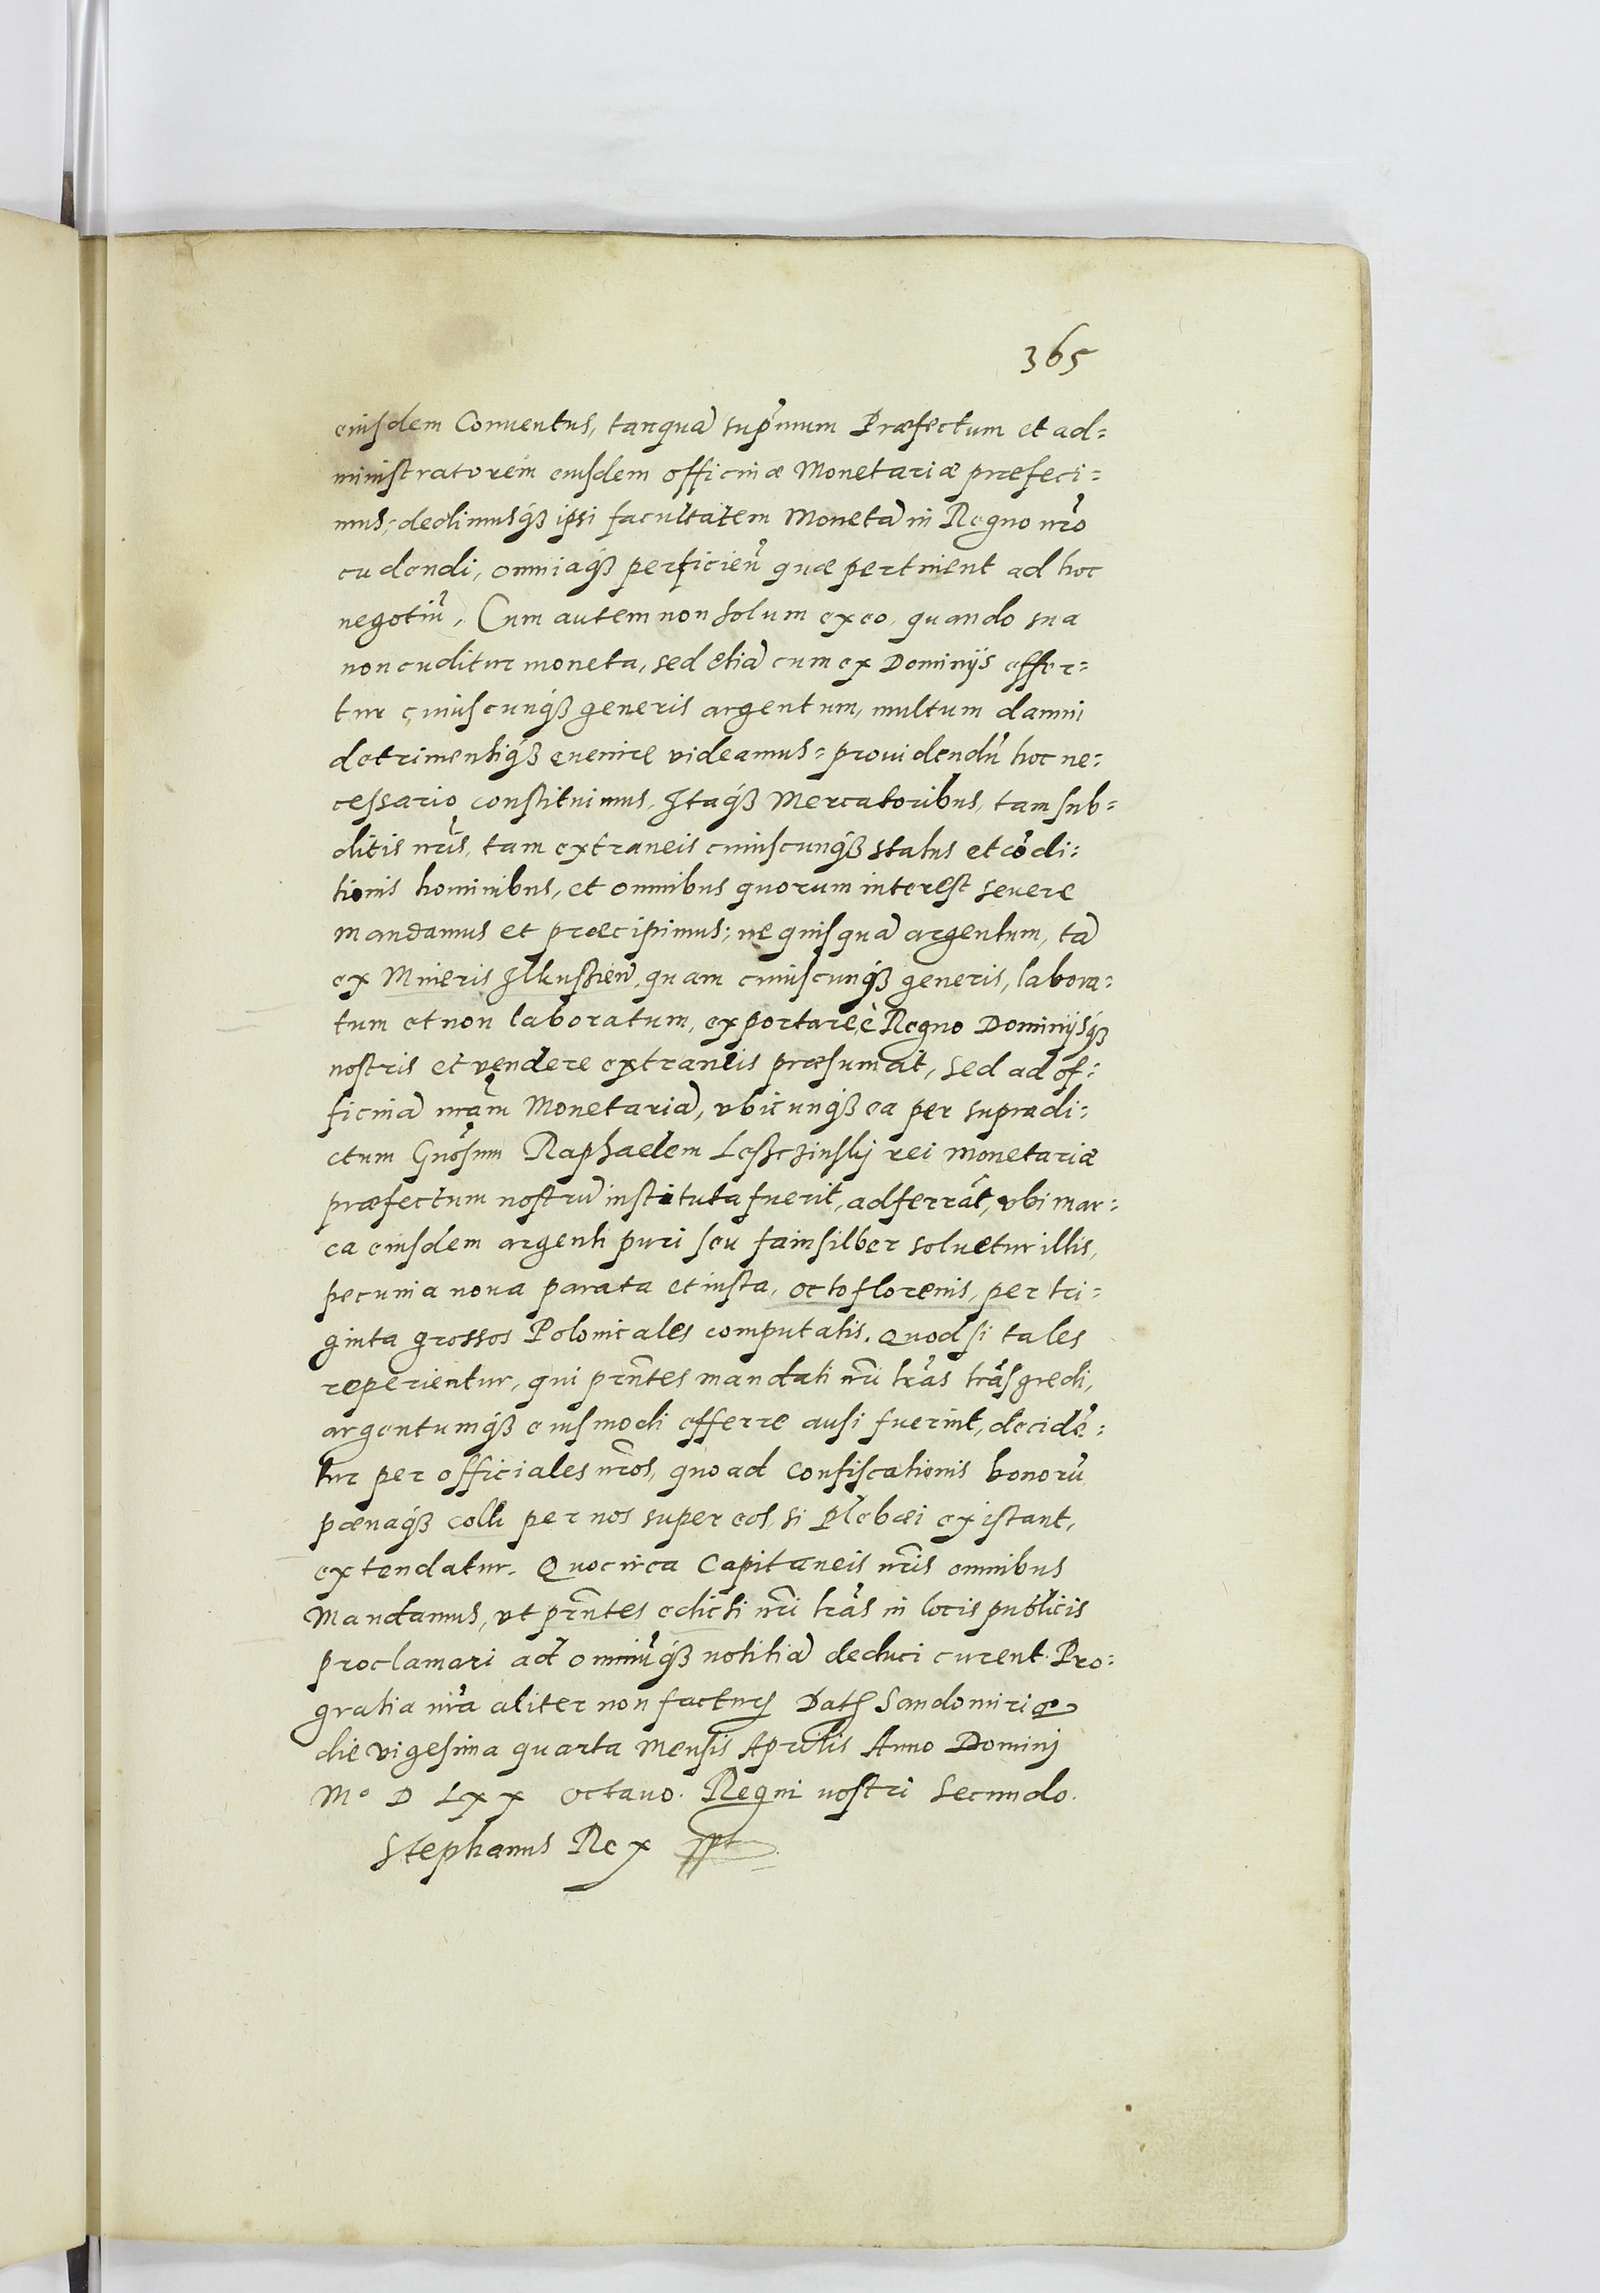 365
eiusdem Conuentus, tanquā supr̄mum Præfectum et ad=
ministratorem eiusdem officinæ Monetariæ præfeci=
mus; dedimusqꝫ ipsi facultatem Monetā in Regno nr̄o
cudendi, omniaqꝫ perficien̄ quæ pertinent ad hoc
negotiū. Cum autem non solum ex eo, quando sua
non cuditur moneta, sed etiā cum ex Dominijs effer=
tur cuiuscunqꝫ generis argentum, multum damni
detrimentiqꝫ euenire videamus= prouidendū hoc ne=
cessario constituimus. Itaqꝫ Mercatoribus, tam sub=
ditis nr̄is, tam extraneis cuiuscunqꝫ status et cōdi=
tionis hominibus, et omnibus quorum interest seuere
mandamus et præcipimus; ne quisquā argentum, tā
ex Mineris Ilkussien̄, quam cuiuscunqꝫ generis, labora=
tum et non laboratum, exportare è Regno Dominijsqꝫ
nostris et vendere extraneis præsumat, sed ad of=
ficinā nr̄am Monetariā, vbicunqꝫ ea per supradi=
ctum Gn̄osum Raphaelem Leszczinskij rei monetariæ
præfectum nostrū instituta fuerit, adferrāt, vbi mar=
ca eiusdem argenti puri seu fainsilber soluetur illis,
pecunia noua parata et iusta, octo florenis, per tri=
ginta grossos Polonicales computatis. Quod si tales
reperientur, qui prn̄tes mandati nr̄i lr̄as trāsgredi,
argentumqꝫ eiusmodi efferre ausi fuerint, decidē=
tur per officiales nr̄os, quoad confiscationis bonorū
pœnaqꝫ colli per nos super eos, si Plebæi existant,
extendatur. Quocirca Capitaneis nr̄is omnibus
Mandamus, vt prn̄tes edicti nr̄i lr̄as in locis publicis
proclamari ad omniūqꝫ notitiā deduci curent. Pro
gratia nr̄a aliter non factury Dat Sandomiriæ
die vigesima quarta Mensis Aprilis Anno Dominj
Mo D Lxx octauo. Regni nostri Secundo.
Stephanus Rex